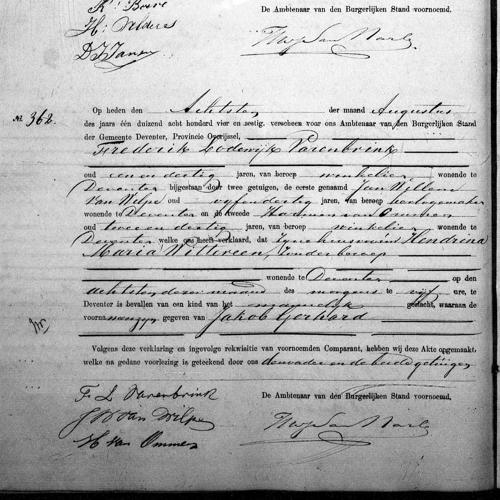 K. Boeve
De Ambtenaar van den Burgerlijken Stand voornoemd.
H.
D. J. Jansen
No. 362.
Op heden den Achtsten der maand Augustus
des jaars één duizend acht honderd vier en sestig, verscheen voor ons Ambtenaar van den Burgerlijken Stand
der Gemeente Deventer, Provincie Overijssel,
Frederik Lodewijk Varenbrink
oud een en dertig jaren, van beroep winkelier, wonende te
Deventer bijgestaan door twee getuigen, de eerste genaamd Jan Willem
van Wilpe oud vijfendertig jaren, van beroep horlogemaker
wonende te Deventer en de tweede Harmen van Ommen
oud twee en dertig jaren, van beroep winkelier wonende te
Deventer welke ons heeft verklaard, dat zijne huisvrouw Hendrena
Maria Witteveen, zonder beroep
wonende te Deventer op den
achtsten dezer maand des morgens te vijf ure, te
Deventer is bevallen van een kind van het mannelijk geslacht, waaraan de
voornaam gegeven van Jakob Gerhard
Volgens deze verklaring en ingevolge rekwisitie van voornoemden Comparant, hebben wij deze Akte opgemaakt,
welke na gedane voorlezing is geteekend door ons den vader en de beide getuigen
F. L. Varenbrink
De Ambtenaar van den Burgerlijken Stand voornoemd.
J W van Wilpe
H van Ommen